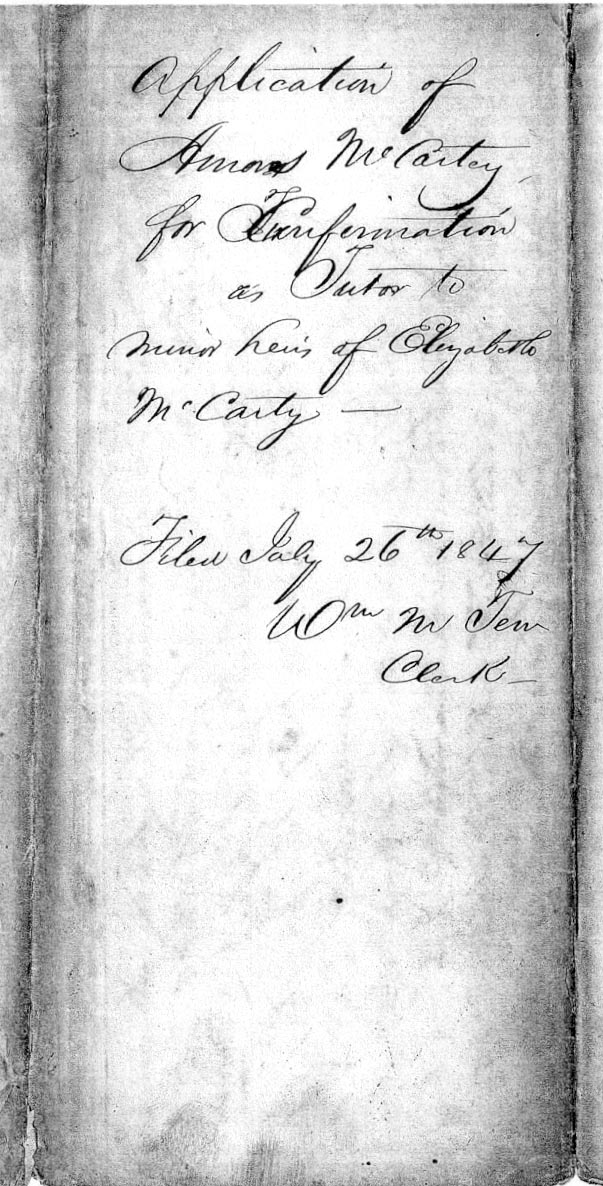 Application of
Amos McCartey
for Confirmation
as Tutor to
minor heirs of Elizabeth
McCarty —
Filed July 26th 1847
Wm M Tew
Clerk —